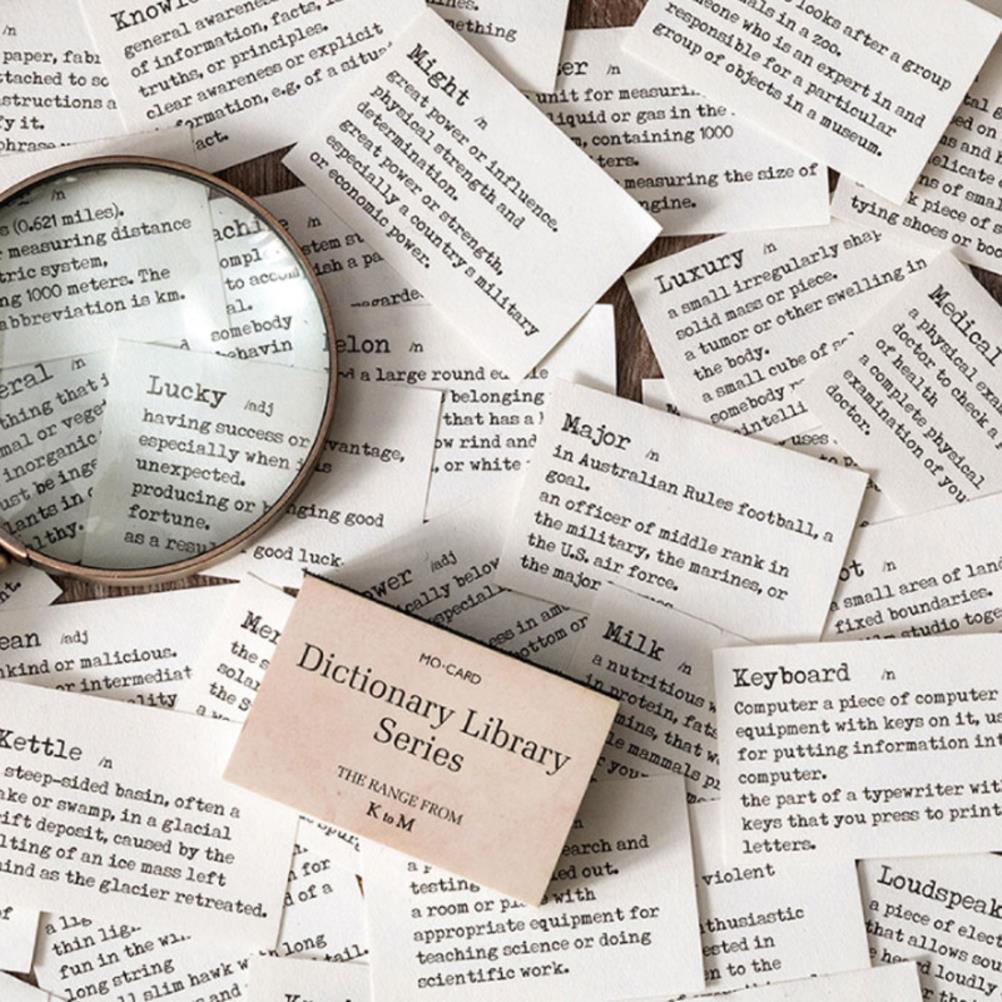 /n
paper, fabr
ttached to so
structions a
fy it.
phrase
Knowle
general awareness
of information, facts, i
truths, or principles.
clear awareness or explicit
formation, e.g. of a situ
act.
mething
Might /n
great power or influence.
physical strength and
determination.
great power or strength,
especially a country's military
or economic power.
er /n
unit for measuri
liquid or gas in the
, containing 1000
ters.
measuring the size of
ngine.
looks after a group
mals in a zoo.
eone who is an expert in and
responsible for a particular
group of objects in a museum.
tal
ed on
ms and
elicate
ns of sma
k piece of s
tying shoes or boo
/n
s (0.621 miles).
measuring distance
tric system,
ng 1000 meters. The
abbreviation is km.
achi /n
ompl stem st
to accom ish a pa
al.
somebody
behavin
regarde
elon /n
d a large round e
belonging
that has a
ow rind and
, or white
Luxury /n
a small irregularly shap
solid mass or piece.
a tumor or other swelling in
the body.
a small cube of s
somebody
intelli
uses
to p
Medical
a physical exa
doctor to check a
of health
a complete physical
examination of you
doctor.
eral /n
thing that i
mal or vege
inorganic
ust be inge
lants in
lthy.
nt.
Lucky /adj
having success or
especially when i
unexpected.
producing or b
fortune.
as a resul
ls
vantage,
nging good
good luck.
Major /n
in Australian Rules football, a
goal.
an officer of middle rank in
the military, the marines, or
the U.S. air force.
the major
ower /adj
cally below
especiall
ess in amo
ottom or
ot /n
small area of land
fixed boundaries.
studio toge
ean /adj
kind or malicious.
or intermediat
ality
Mer
the s
solar
the S
Milk /n
a nutritious w
in protein, fats
mins, that w
le mammals pr
your
Keyboard /n
Computer a piece of computer
equipment with keys on it, us
for putting information int
computer.
the part of a typewriter wit
keys that you press to print
letters.
MO·CARD
Dictionary Library
Series
THE RANGE FROM
K to M
Kettle /n
steep-sided basin, often a
ake or swamp, in a glacial
ift deposit, caused by the
lting of an ice mass left
hind as the glacier retreated.
for
of a
a
thin lig
fun in the wi
long string
ll slim hawk w
long
tail.
earch and
ed out.
testing
a room or pl e with
appropriate equipment for
teaching science or doing
scientific work.
violent
nthusiastic
ested in
en to the
Loudspeak
a piece of elect
that allows sou
e heard loudly